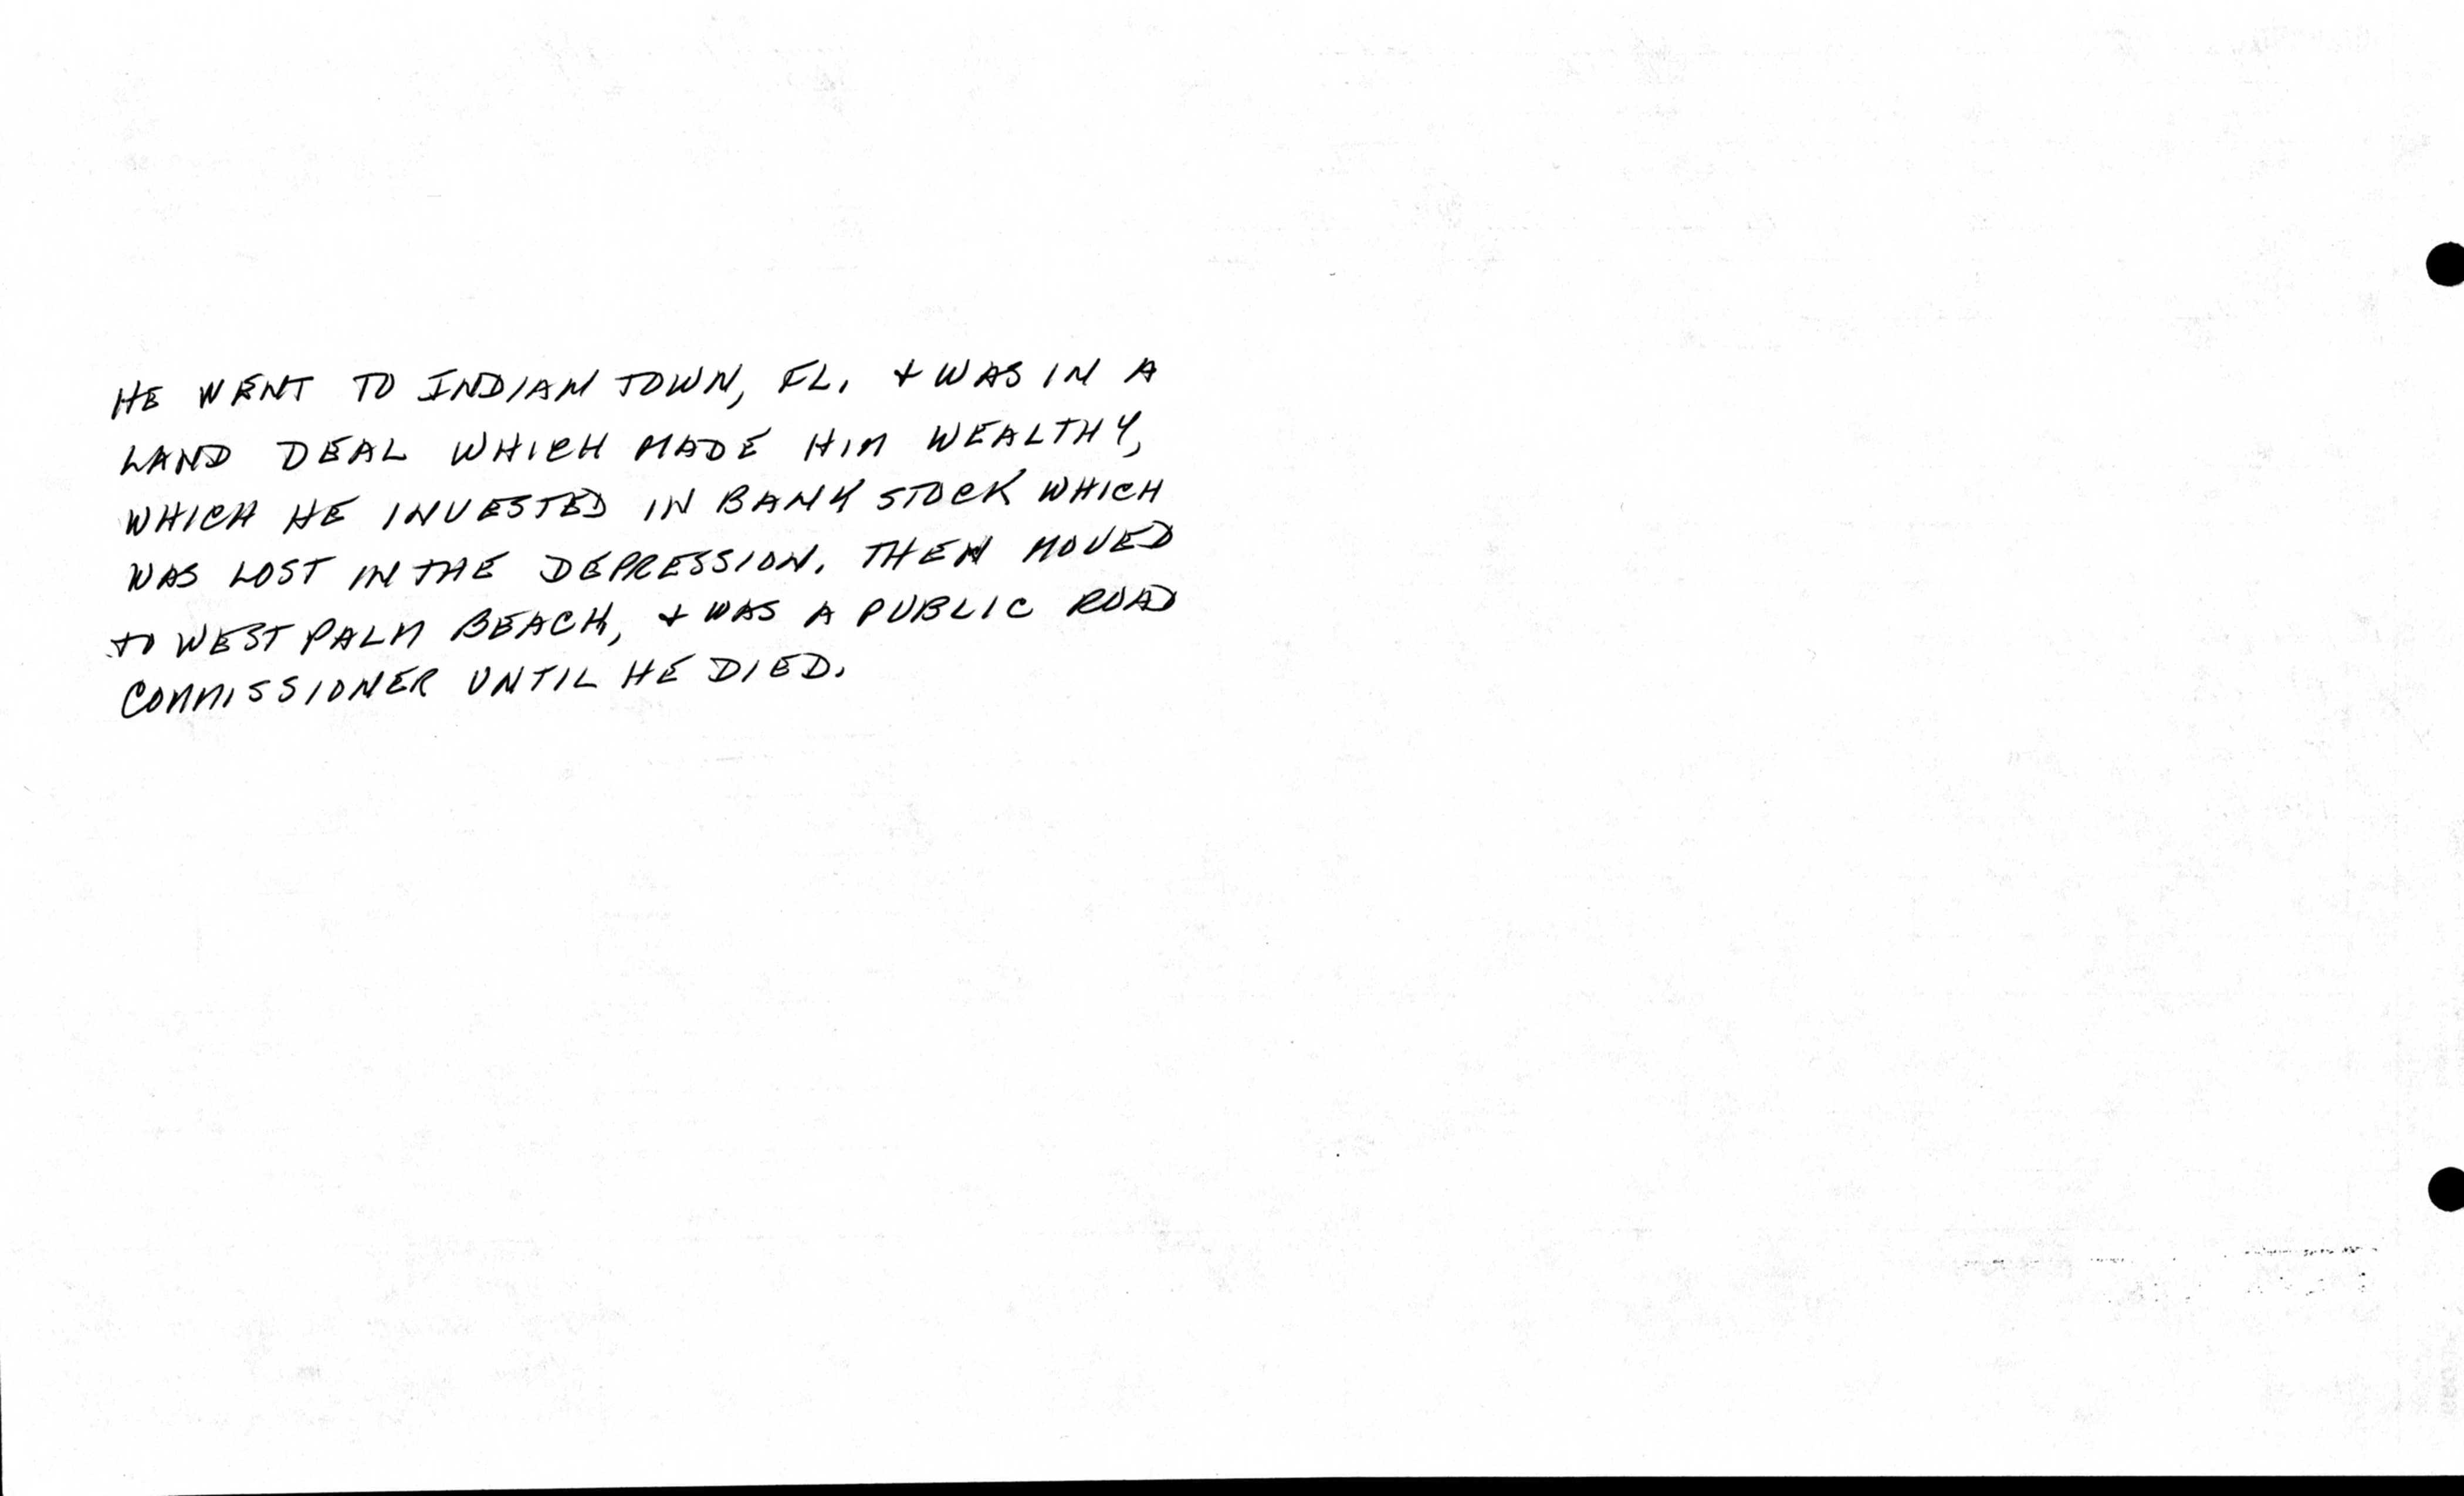 HE WENT TO INDIAN TOWN, FL. & WAS IN A
LAND DEAL WHICH MADE HIM WEALTHY,
WHICH HE INVESTED IN BANK STOCK WHICH
WAS LOST IN THE DEPRESSION. THEN MOVED
TO WEST PALM BEACH, & WAS A PUBLIC ROAD
COMMISSIONER UNTIL HE DIED.